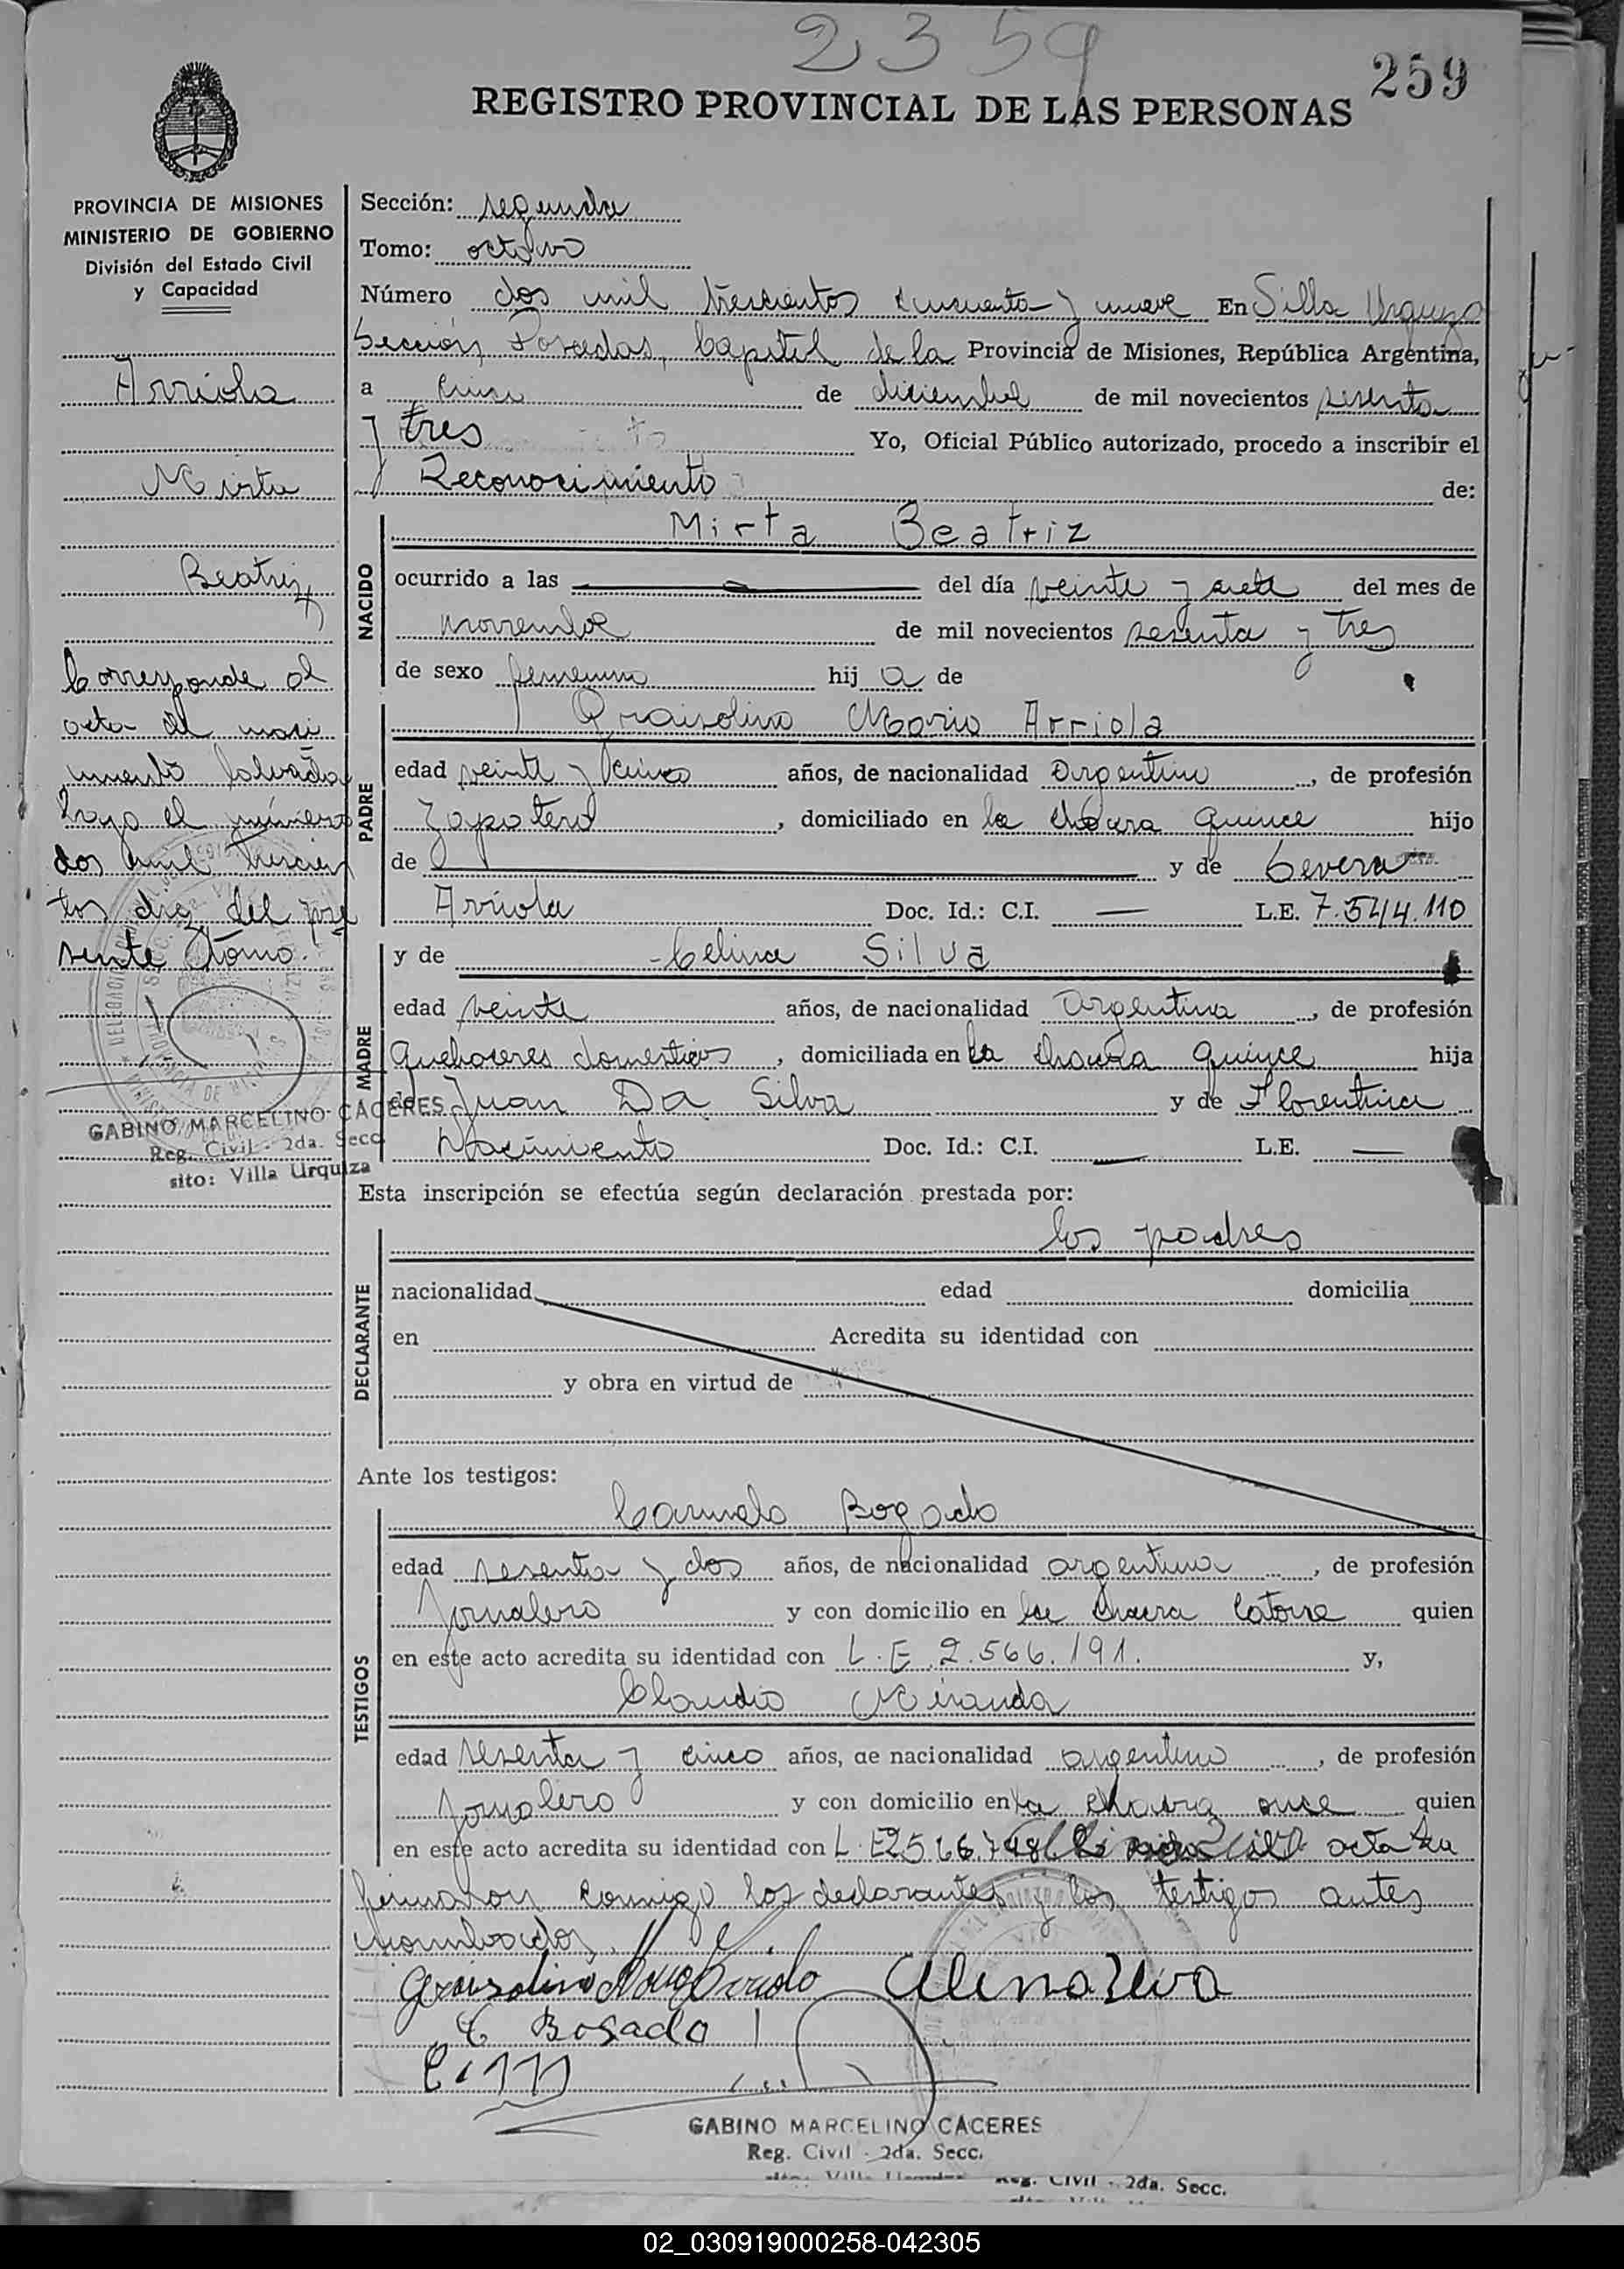 2359
259
REGISTRO PROVINCIAL DE LAS PERSONAS
PROVINCIA DE MISIONES
MINISTERIO DE GOBIERNO
División del Estado Civil
y Capacidad
Arriola
Mirta
Beatriz
Corresponde al
acta de naci
miento labrada
bajo el número
dos mil trescien
tos diez del pre
sente tomo.
GABINO MARCELINO CACERES
Reg. Civil - 2da. Secc
sito: Villa Urquiza
Sección: segunda
Tomo: octavo
Número dos mil trescientos cincuenta y nueve En Villa Urquiza
Sección, Posadas, Capital de la Provincia de Misiones, República Argentina,
a cinco de diciembre de mil novecientos sesenta
y tres Yo, Oficial Público autorizado, procedo a inscribir el
Reconocimiento de:
NACIDO
Mirta Beatriz
ocurrido a las del día veinte y siete del mes de
noviembre de mil novecientos sesenta y tres
de sexo femenino hij a de
PADRE
Graisolino Mario Arriola
edad veinte y cinco años, de nacionalidad argentino, de profesión
Zapatero, domiciliado en la chacra quince hijo
de y de Severa
Arriola Doc. Id.: C.I. — L.E. 7.544.110
MADRE
y de Celina Silva
edad veinte años, de nacionalidad argentina, de profesión
quehaceres domesticos, domiciliada en la chacra quince hija
de Juan Da Silva y de Florentina
Nacimiento Doc. Id.: C.I. — L.E. —
Esta inscripción se efectúa según declaración prestada por:
DECLARANTE
los padres
nacionalidad edad domicilia
en Acredita su identidad con
y obra en virtud de
Ante los testigos:
TESTIGOS
Carmelo Bogado
edad sesenta y dos años, de nacionalidad argentina, de profesión
Jornalero y con domicilio en la chacra catorce quien
en este acto acredita su identidad con L.E. 2.566.191. y,
Claudio Miranda
edad sesenta y cinco años, de nacionalidad argentino, de profesión
Jornalero y con domicilio en la chacra once quien
en este acto acredita su identidad con L.E. acta la
firmaron conmigo los declarantes y los testigos antes
nombrados.
Graisolino Mario Arriola Celina Silva
C Bogado
C. M
GABINO MARCELINO CACERES
Reg. Civil - 2da. Secc.
Reg. Civil - 2da. Secc.
02_030919000258-042305